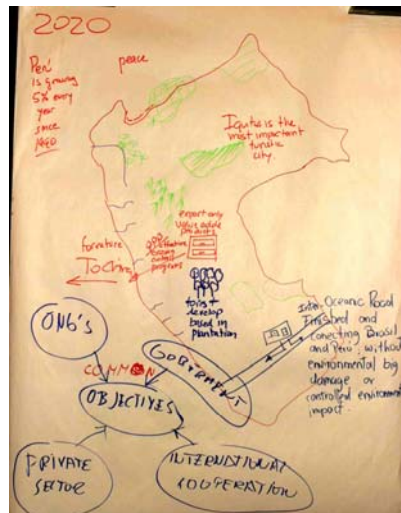 2020
Perú
is growing
5% every
year
since
1990
peace
Iquitos is the
most important
turistic
city.
export only
value adding
products
forniture
To China
programs
forest
develop
based in
plantation
Inter Oceanic Road
finished and
conecting Brasil
and Perú, without
environmental big
damage or
controlled environment
impact.
ONG's
GOBERMENT
COMMON
OBJECTIVES
PRIVATE
SECTOR
INTERNATIONAL
COOPERATION